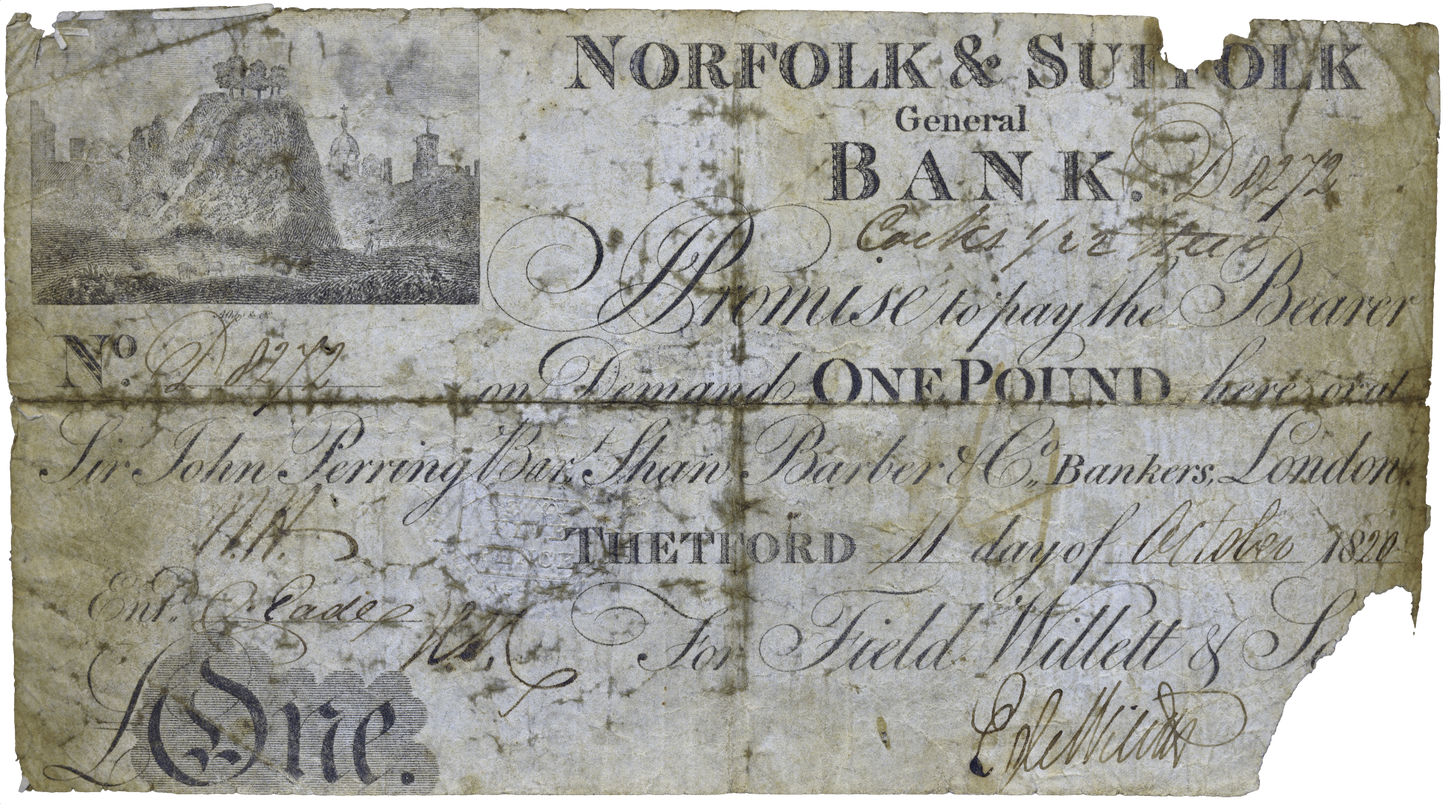 NORFOLK & SUFFOLK
General
BANK.
D 8272
Promise to pay the Bearer
No. D 8272
on Demand ONE POUND here or at
Sir John Perring Bart. Shaw Barber & Co. Bankers, London.
THETFORD 11 day of October 1820
Entd.
For Field Willett & S
£One.